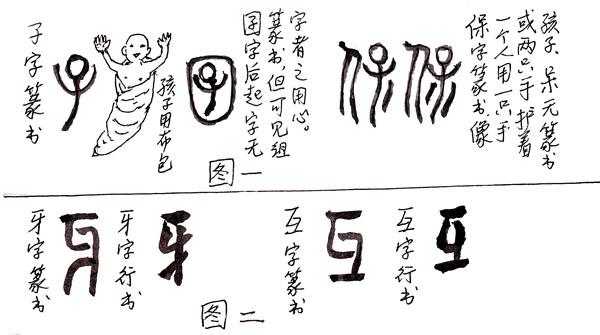 子字篆书
子
孩子用布包
囝
囝字后起字无
篆书,但可见组
字者之用心。
保 保
保字篆书,像
一个人用一只手
或两只手护着
孩子。呆无篆书
图一
牙字篆书
牙
牙字行书
牙
互字篆书
互
互字行书
互
图二